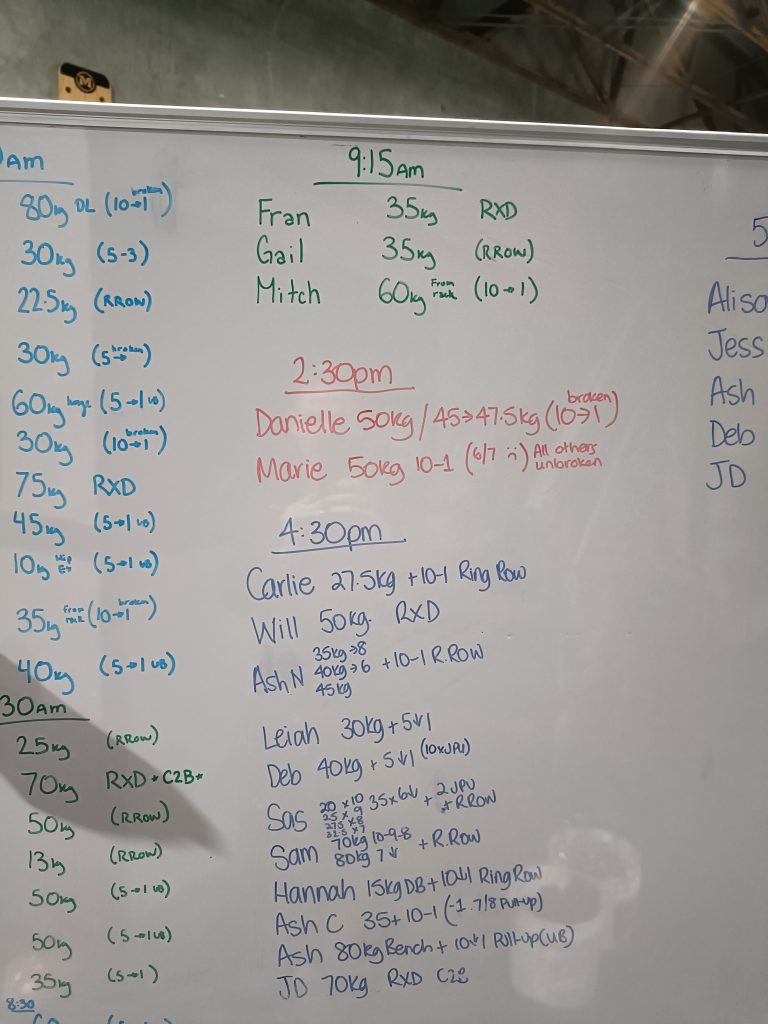 M
AM
80kg DL (10→1 broken)
30kg (5-3)
22.5kg (RROW)
30kg (5→ broken)
60kg (5→1 UB)
30kg (10→1 broken)
75kg RXD
45kg (5→1 UB)
10kg (5→1 UB)
35kg From rack (10→1 broken)
40kg (5→1 UB)
30AM
25kg (RROW)
70kg RXD *C2B*
50kg (RROW)
13kg (RROW)
50kg (5→1 UB)
50kg (5→1 UB)
35kg (5→1)
8:30
9:15AM
Fran 35kg RXD
Gail 35kg (RROW)
Mitch 60kg From rack (10→1)
2:30pm
Danielle 50kg / 45→47.5kg (10→1) broken
Marie 50kg 10-1 (6/7 :) All others unbroken
4:30pm
Carlie 27.5kg +10-1 Ring Row
Will 50kg. RXD
Ash N 35kg→8 40kg→6 45kg +10-1 R.ROW
Leiah 30kg+5↓1
Deb 40kg + 5↓1 (10xJPU)
Sas 20 x 10 25 x 9 27.5 x 8 32.5 x 7 35x6↓ + 2JPU + RROW
Sam 70kg 10-9-8 80kg 7↓ + R.Row
Hannah 15kg DB+10↓1 Ring Row
Ash C 35+10-1 (-1 7/8 Pull-up)
Ash 80kg Bench + 10↓1 Pull-up (UB)
JD 70kg RXD C2B
5
Aliso
Jess
Ash
Deb
JD